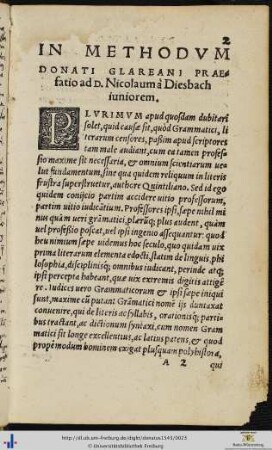 2
IN METHODVM
DONATI GLAREANI PRAE=
fatio ad D. Nicolaum à Diesbach
iuniorem.
PLVRIMVM apud quosdam dubitari
solet, quid causæ sit, quòd Grammatici, li
terarum censores, passim apud scriptores
tam male audiant, cum ea tamen profes=
sio maxime sit necessaria, & omnium scientiarum ue=
lut fundamentum, sine qua quidem reliquum in literis
frustra superstruitur, authore Quintiliano. Sed id ego
quidem conijcio partim accidere uitio professorum,
partim uitio iudicātium. Professores ipsi, sæpe nihil mi
nus quàm ueri grāmatici, plærūq; plus audent, quàm
uel professio poscat, uel ipsi ingenio assequantur: quod
heu nimium sæpe uidemus hoc seculo, quo quidam uix
prima literarum elementa edocti, statim de linguis, phi
losophia, disciplinisq; omnibus iudicant, perinde atq;
ipsi percepta habeant, quæ uix extremis digitis attigē
re. Iudices uero Grammaticorum & ipsi sæpe iniqui
sunt, maxime cū putant Grāmatici nomē ijs duntaxat
conuenire, qui de literis ac syllabis, orationisq; parti=
bus tractant, ac dictionum syntaxi, cum nomen Gram
matici sit longe excellentius, ac latius patens, & quod
propemodum hominem exigat plusquam polyhistora,
A 2 qui
http://dl.ub.uni-freiburg.de/diglit/donatus1541/0023
© Universitätsbibliothek Freiburg